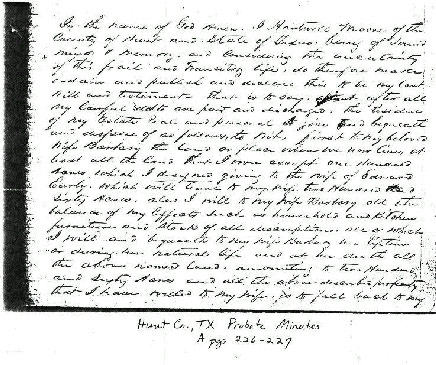 In the name of God Amen. I Hartwell Moore of the
County of Hunt and State of Texas being of Sound
mind & memory, and Considering the uncertainty
of this frail and Transitory life, do therefore make,
ordain and publish and declare this to be my last
Will and testament. That is to say, after all
my Lawful debts are paid and discharged. The residue
of my Estate real and personal I give and bequeath
and dispose of as follows, to Wit, first to my beloved
Wife the land or place where we now live, at
least all the land that I own except one Hundred
Acres, which I design giving to the Wife of Edmond
which will leave to my Wife two Hundred
Sixty Acres. also I will to my Wife all the
balance of my Effects Such as household and Kitchen
furniture and Stocks of all description, all of which
I will and bequeath to my Wife her lifetime
or during her natural life and at her death all
the above named land, amounting to two Hundred
and Sixty Acres and all the above described property
that I have willed to my Wife, to fall back to my
Hunt Co., TX Probate Minutes
A pgs 226-227